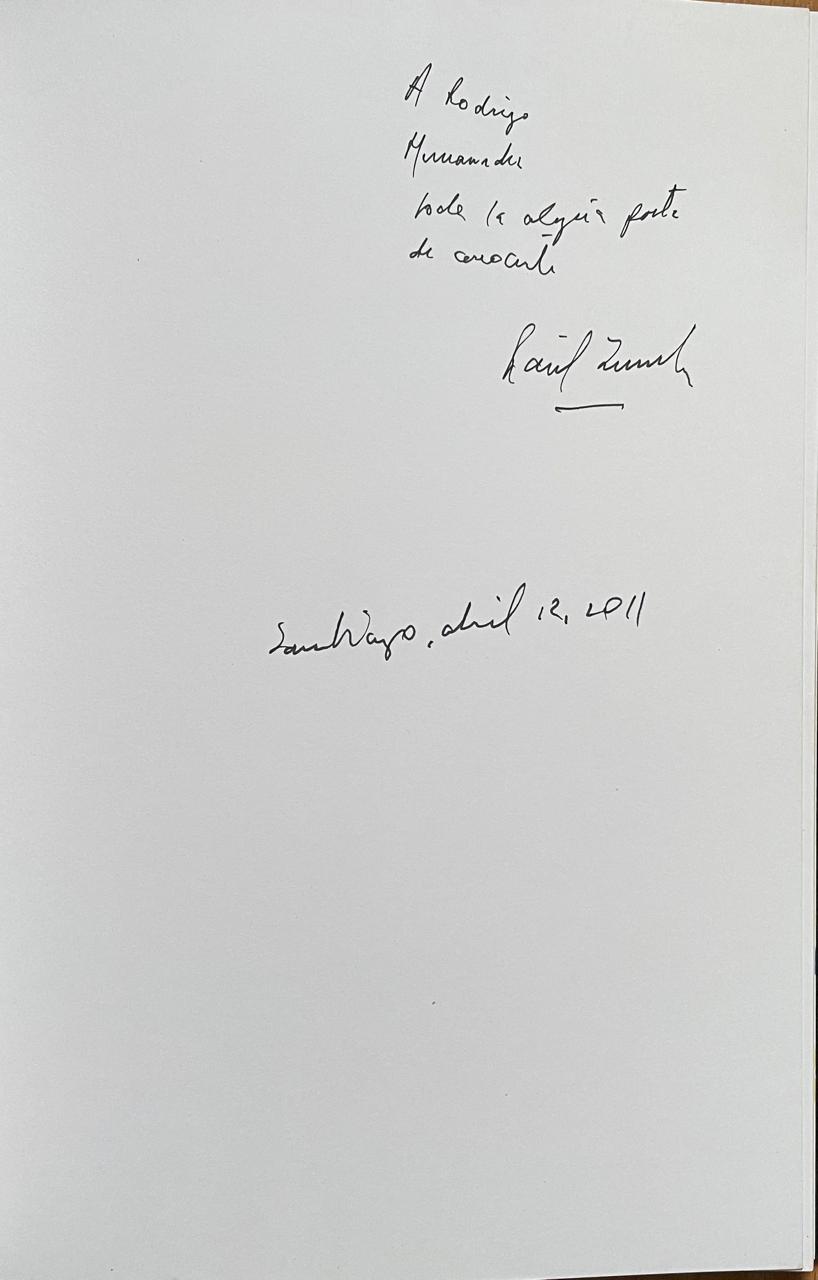 A Rodrigo
toda la alegría
de conocerte
Raúl Zurita
Santiago, abril 12, 2011